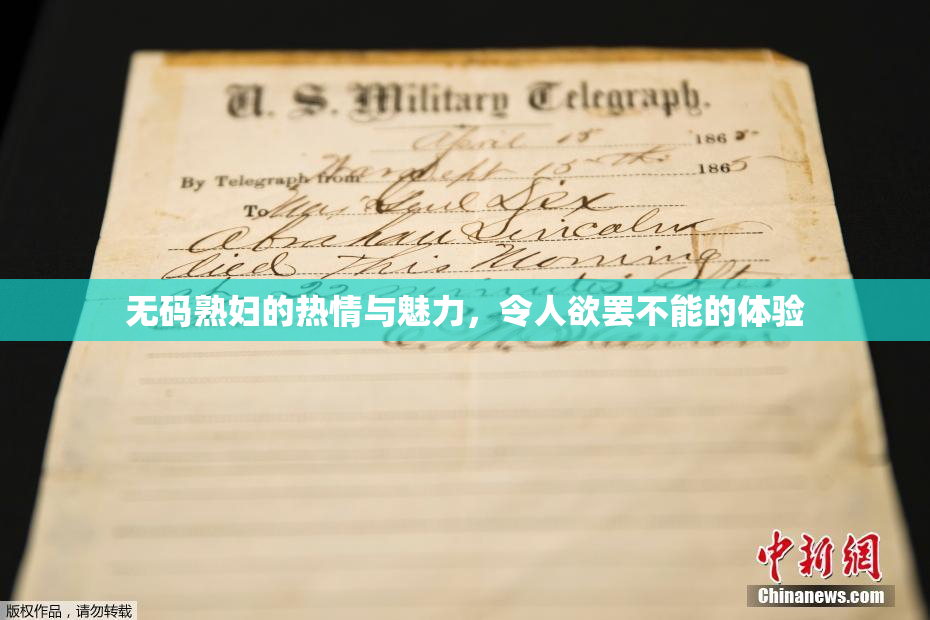 U. S. Military Telegraph.
April 15 1865
By Telegraph from War Dept 15th 1865
To Maj Genl Dix
Abraham Lincoln
died This Morning
at 22 minutes after
无码熟妇的热情与魅力，令人欲罢不能的体验
E. M. Stanton
中新网
Chinanews.com
版权作品，请勿转载